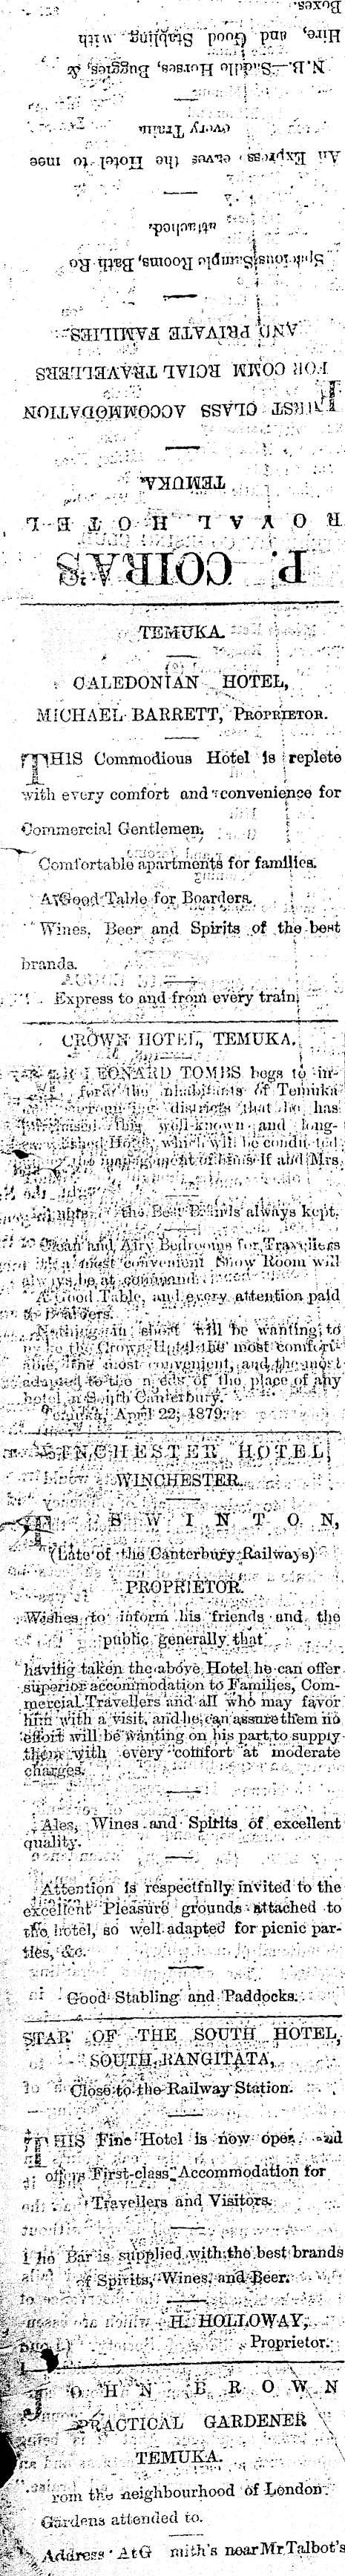 P. COIRA'S
ROYAL HOTEL
TEMUKA.
FIRST CLASS ACCOMMODATION
FOR COMM RCIAL TRAVELLERS
AND PRIVATE FAMILIES.
Spacious Sample Rooms, Bath Ro
attached.
An Express eaves the Hotel to mee
every Train
N.B.—Saddle Horses, Buggies, &
Hire, and Good Stabling with
Boxes.
TEMUKA.
CALEDONIAN HOTEL,
MICHAEL BARRETT, PROPRIETOR.
THIS Commodious Hotel is replete
with every comfort and convenience for
Commercial Gentlemen.
Comfortable apartments for families.
A Good Table for Boarders.
Wines, Beer and Spirits of the best
brands.
Express to and from every train.
CROWN HOTEL, TEMUKA.
LEONARD TOMBS begs to in-
form the inhabitants of Temuka
surrounding districts that he has
this well-known and long-
Hotel, which will be conducted
the management of himself and Mrs
the Best Brands always kept.
Clean and Airy Bedrooms for Travellers
a most convenient Show Room will
always be at command.
A Good Table, and every attention paid
to Boarders.
Nothing in short will be wanting to
make the Crown Hotel the most comfort-
able, the most convenient, and the most
adapted to the needs of the place of any
hotel in South Canterbury.
Temuka, April 22, 1879.
WINCHESTER HOTEL,
WINCHESTER.
T SWINTON,
(Late of the Canterbury Railways)
PROPRIETOR.
Wishes to inform his friends and the
public generally that
having taken the above Hotel he can offer
superior accommodation to Families, Com-
mercial Travellers and all who may favor
him with a visit, and he can assure them no
effort will be wanting on his part to supply
them with every comfort at moderate
charges.
Ales, Wines and Spirits of excellent
quality.
Attention is respectfully invited to the
excellent Pleasure grounds attached to
the hotel, so well adapted for picnic par-
ties, &c.
Good Stabling and Paddocks.
STAR OF THE SOUTH HOTEL,
SOUTH RANGITATA,
Close to the Railway Station.
THIS Fine Hotel is now open and
offers First-class Accommodation for
Travellers and Visitors.
The Bar is supplied with the best brands
of Spirits, Wines, and Beer.
H. HOLLOWAY,
Proprietor.
JOHN BROWN
PRACTICAL GARDENER
TEMUKA.
rom the neighbourhood of London.
Gardens attended to.
Address At G mith's near Mr Talbot's